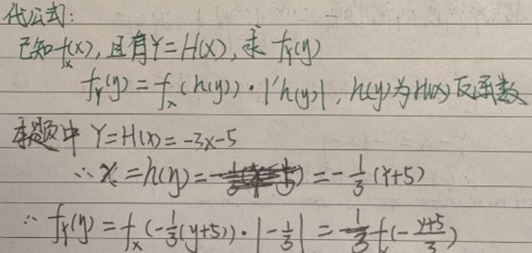 代公式:
已知fx(x), 且有Y=H(x), 求 fY(y)
fY(y)=fx(h(y))·|'h(y)|, h(y)为H(x)反函数
本题中 Y=H(x)=-3x-5
∴ x=h(y)= =-1/3(y+5)
∴ fY(y)=fx(-1/3(y+5))·|-1/3|= 1/3f(-y+5/3)